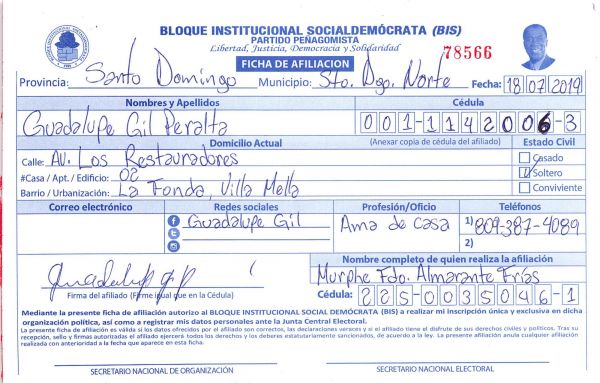 BLOQUE INSTITUCIONAL SOCIALDEMÓCRATA (BIS)
PARTIDO PEÑAGOMISTA
Libertad, Justicia, Democracia y Solidaridad
78566
FICHA DE AFILIACION
Provincia: Santo Domingo Municipio: Sto. Dgo. Norte Fecha: 18 07 2019
Nombres y Apellidos Cédula
Guadalupe Gil Peralta 001-1142006-3
Domicilio Actual (Anexar copia de cédula del afiliado) Estado Civil
Calle: Av. Los Restauradores Casado
#Casa / Apt. / Edificio: 02 Soltero
Barrio / Urbanización: La Fonda, Villa Mella Conviviente
Correo electrónico Redes sociales Profesión/Oficio Teléfonos
Guadalupe Gil Ama de casa 1) 809-387-4089
2)
Nombre completo de quien realiza la afiliación
Murphe Fdo. Almarante Frías
Firma del afiliado (Firme igual que en la Cédula) Cédula: 225-0035046-1
Mediante la presente ficha de afiliación autorizo al BLOQUE INSTITUCIONAL SOCIAL DEMÓCRATA (BIS) a realizar mi inscripción única y exclusiva en dicha
organización política, así como a registrar mis datos personales ante la Junta Central Electoral.
La presente ficha de afiliación es válida si los datos ofrecidos por el afiliado son correctos, las declaraciones veraces y si el afiliado tiene el disfrute de sus derechos civiles y políticos. Tras su
recepción, sello y firmas autorizadas el afiliado ejercerá todos los derechos y los deberes estatutariamente sancionados, de acuerdo a la ley. La presente afiliación anula cualquier afiliación
realizada con anterioridad a la fecha que aparece en esta ficha.
SECRETARIO NACIONAL DE ORGANIZACIÓN SECRETARIO NACIONAL ELECTORAL